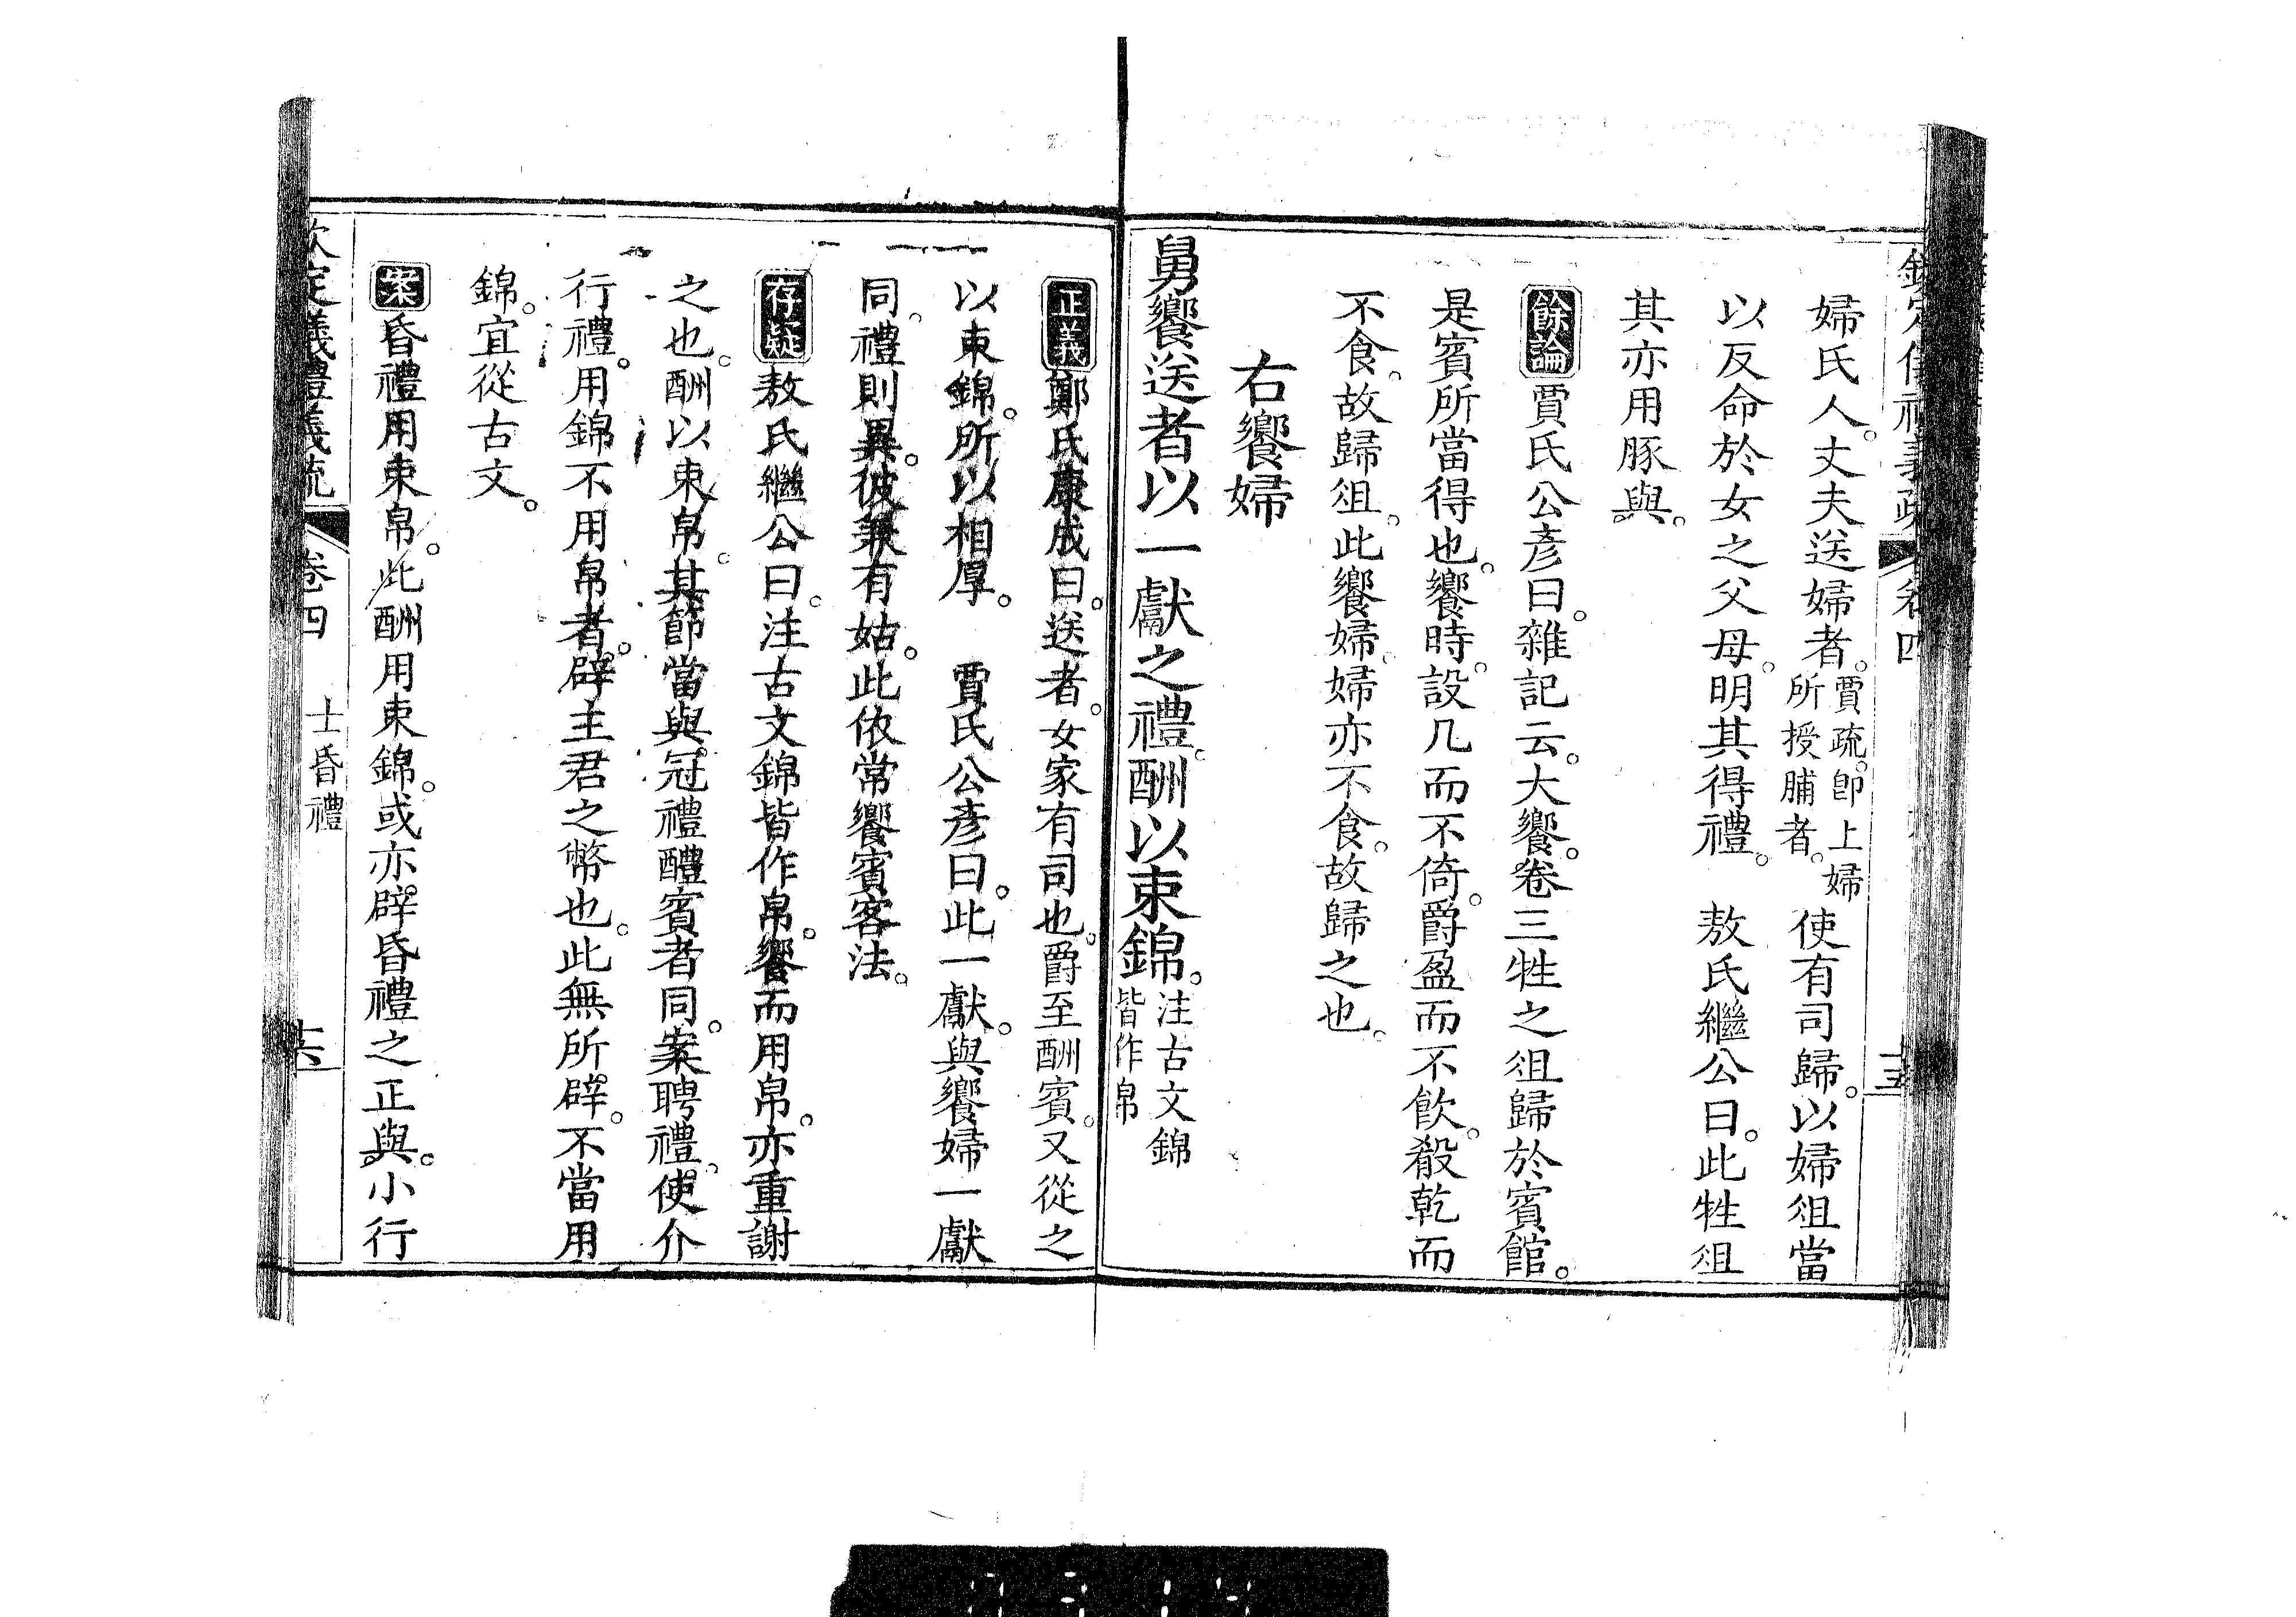 婦氏人。丈夫送婦者。賈疏。卽上婦所授脯者。使有司歸。以婦俎當
以反命於女之父母。明其得禮。 敖氏繼公曰。此牲俎
其亦用豚與。
餘論 賈氏公彥曰。雜記云。大饗。卷三牲之俎歸於賓館。
是賓所當得也。饗時。設几而不倚。爵盈而不飲。殽乾而
不食。故歸俎。此饗婦。婦亦不食。故歸之也。
右饗婦
舅饗送者以一獻之禮。酬以束錦。注古文錦皆作帛
正義 鄭氏康成曰。送者。女家有司也。爵至酬賓。又從之
以束錦。所以相厚。 賈氏公彥曰。此一獻。與饗婦一獻
同。禮則異。彼兼有姑。此依常饗賓客法。
存疑 敖氏繼公曰。注古文錦皆作帛。饗而用帛。亦重謝
之也。酬以束帛。其節當與冠禮醴賓者同。案聘禮。使介
行禮。用錦不用帛者。辟主君之幣也。此無所辟。不當用
錦。宜從古文。
案 昏禮用束帛。此酬用束錦。或亦辟昏禮之正與。小行
欽定儀禮義疏 卷四 士昏禮